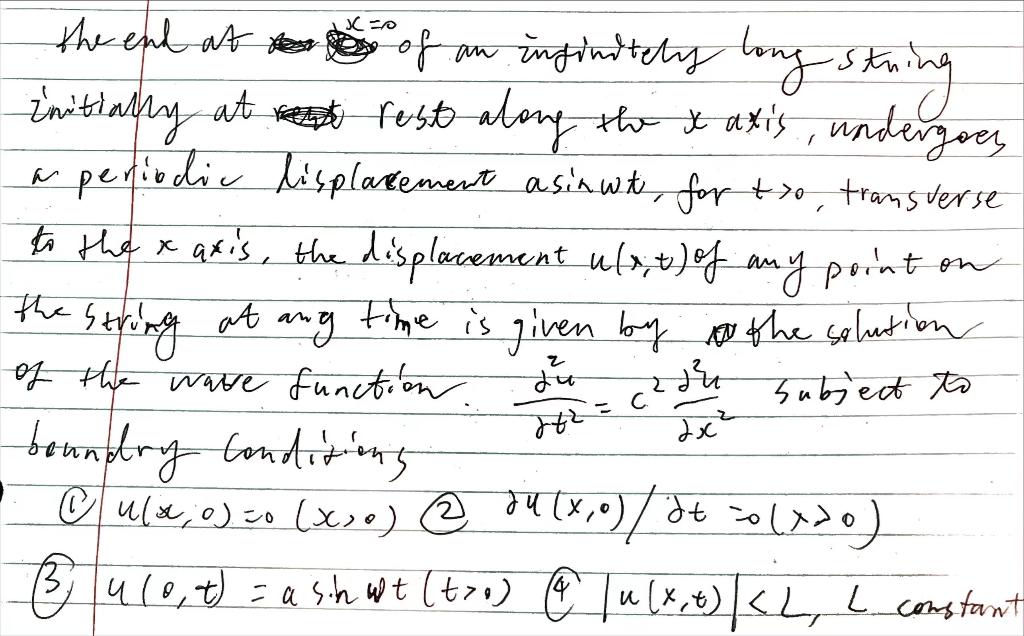 the end at x=0 of an infinitely long string
initially at rest along the x axis, undergoes
a periodic displacement a sin wt, for t>0, transverse
to the x axis, the displacement u(x,t) of any point on
the string at any time is given by the solution
of the wave function. ∂²u/∂t² = c² ∂²u/∂x² subject to
boundry conditions
① u(x,0)=0 (x>0) ② ∂u(x,0)/∂t =0 (x≥0)
③ u(0,t) = a sin wt (t>0) ④ |u(x,t)|<L, L constant